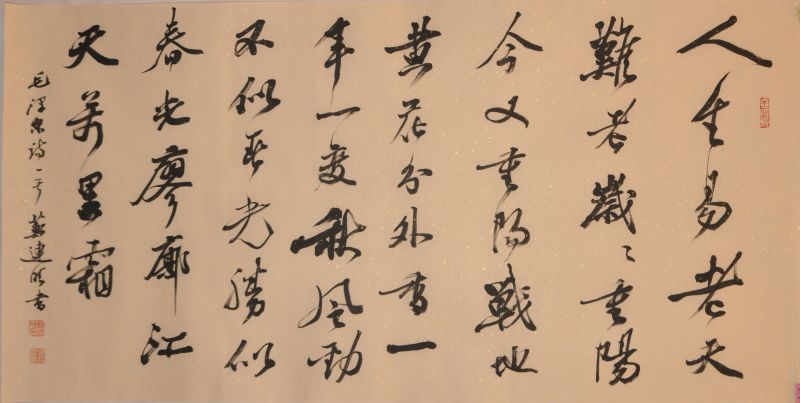 人生易老天
難老歲々重陽
今又重陽戰地
黄花分外香一
年一度秋風勁
不似春光勝似
春光廖廓江
天萬里霜
毛澤東詩一首 蘇建明書